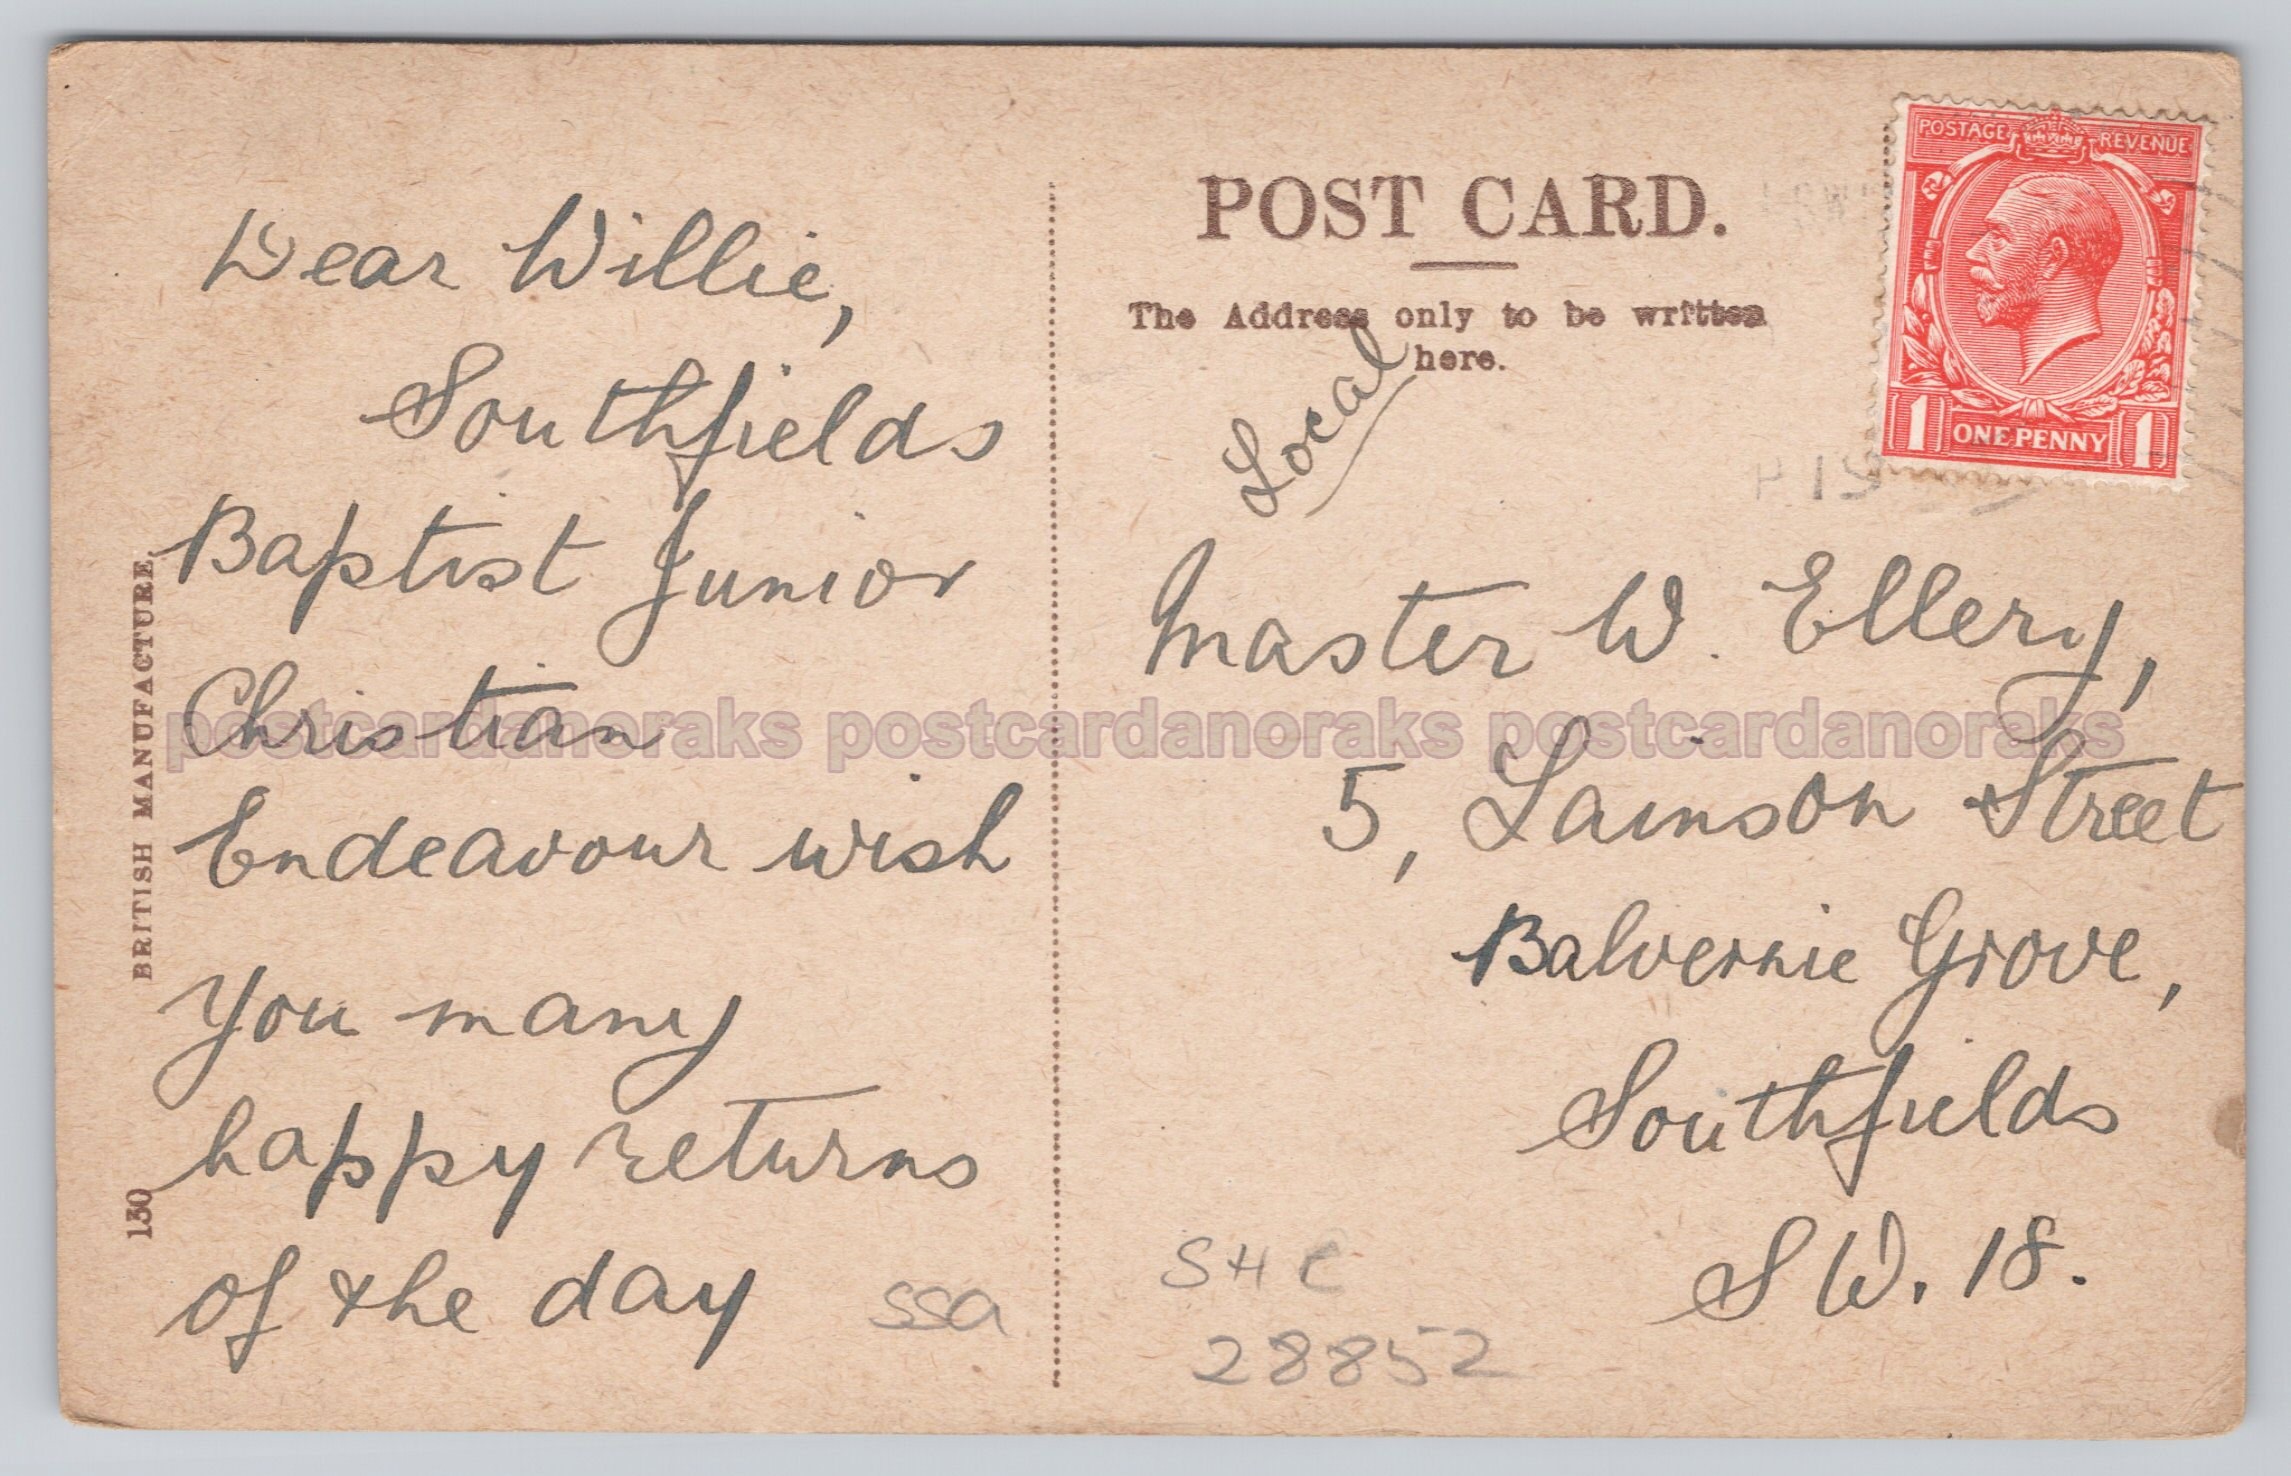 Dear Willie,
Southfields
Baptist Junior
Christian
Endeavour wish
You many
happy returns
of the day
ssa
BRITISH MANUFACTURE.
130
POST CARD.
The Address only to be written
here.
Local
POSTAGE REVENUE
1 ONE PENNY 1
Master W. Ellery,
5, Lainson Street
Balvernie Grove,
Southfields
S W. 18.
SHC
28852
postcardanoraks postcardanoraks postcardanoraks